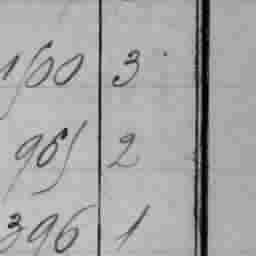 1500 3
965 2
396 1